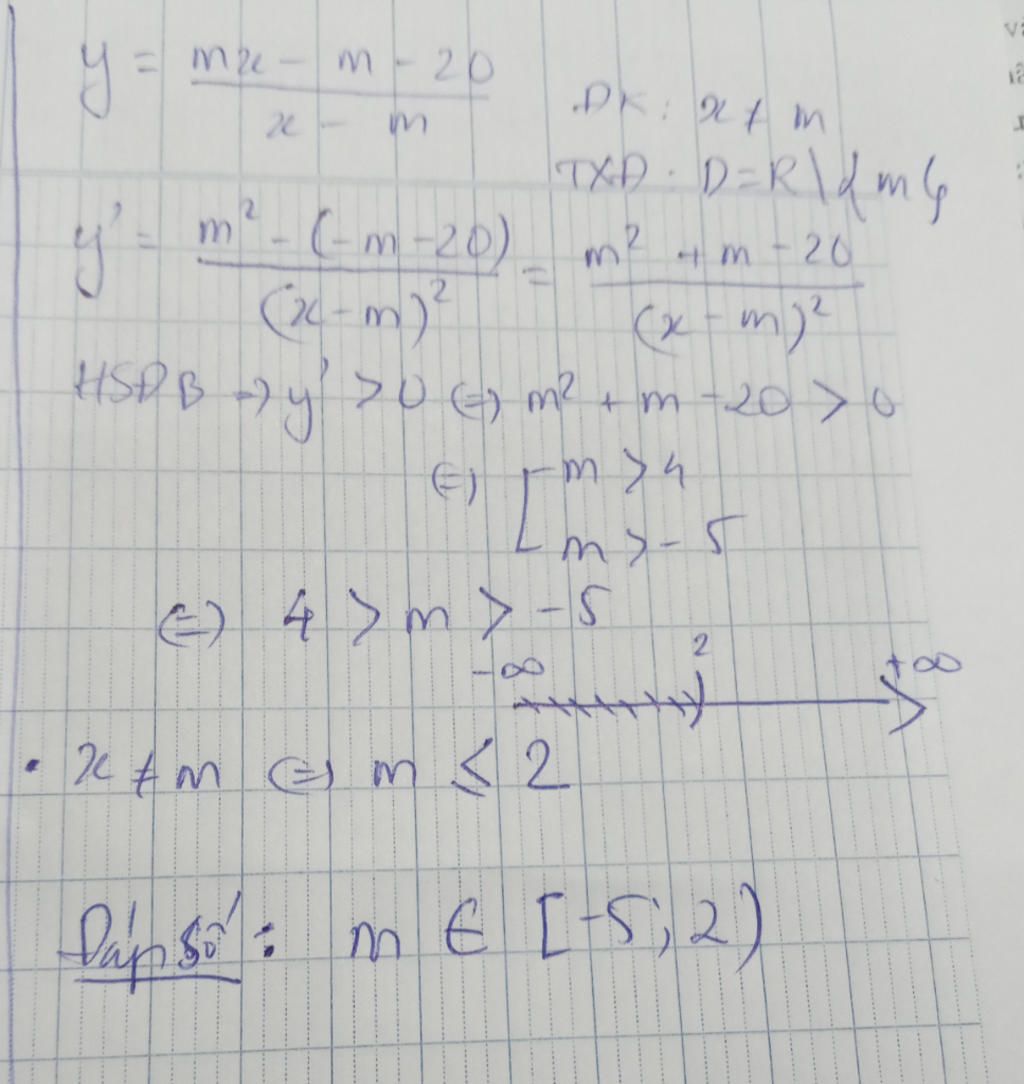 y = (mx - m - 20) / (x - m)
ĐK: x ≠ m
TXĐ: D = R \ {m}
y' = (m² - (-m - 20)) / (x - m)² = (m² + m - 20) / (x - m)²
HSĐB → y' > 0 ⇔ m² + m - 20 > 0
⇔ [ m > 4
m > -5
⇔ 4 > m > -5
-∞ 2 +∞
• x ≠ m ⇔ m ≤ 2
Đáp số: m ∈ [-5; 2)